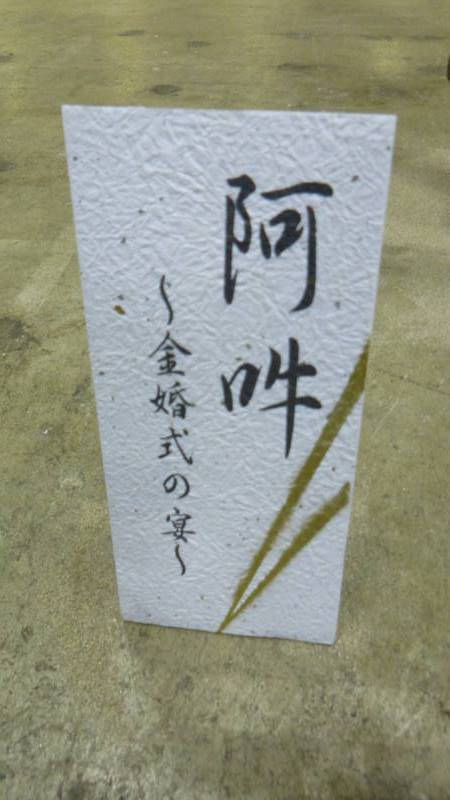 阿吽
〜金婚式の宴〜